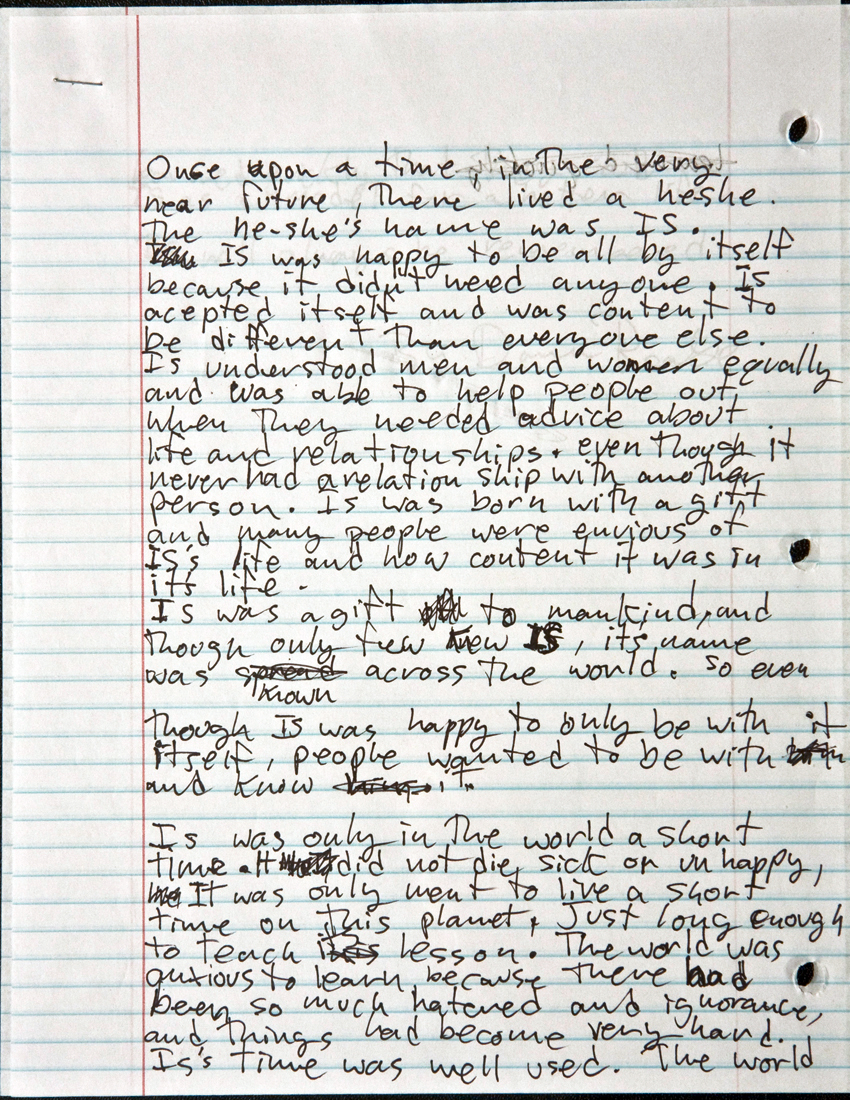 Once upon a time, in the very
near future, There lived a he-she.
The he-she's name was IS.
IS was happy to be all by itself
because it didn't need anyone. Is
acepted itself and was content to
be different Than everyone else.
Is understood men and women equally
and was able to help people out,
when They needed advice about
life and relationships. even Though it
never had a relation ship with another
person. Is was born with a gift
and many people were envious of
IS's life and how content it was in
it's life.
Is was a gift to mankind, and
though only few knew IS, it's name
was spread across the world. So even
known
though IS was happy to only be with it
itself, people wanted to be with
and know it.
Is was only in The world a short
time. It did not die, sick or unhappy,
It was only ment to live a short
time on This planet, Just long enough
to teach its lesson. The world was
anxious to learn, because there had
been so much hatered and ignorance,
and Things had become very hard.
Is's time was well used. The world